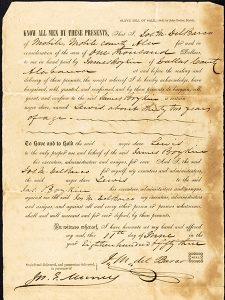 SLAVE BILL OF SALE
KNOW ALL MEN BY THESE PRESENTS, That I, Jos. M. del Barco
of Mobile, Mobile County Ala for and in
consideration of the sum of One thousand Dollars,
to me in hand paid by James Boykin of Dallas County
Alabama at and before the sealing and
delivery of these presents, the receipt whereof I do hereby acknowledge, have
bargained, sold, granted and confirmed, and by these presents do bargain, sell,
grant, and confirm to the said James Boykin a certain
negro slave named Lewis about thirty two years
of age
To Have and to Hold the said Lewis
the said negro slave
to the only proper use and behoof of the said James Boykin
his executors, administrators and assigns, for ever. And I, the said
Jos. M. del Barco for my executors and administrators, the
said negro slave Lewis to the said
Jas. Boykin his executors, administrators and assigns,
against me the said Jos. M. del Barco my executors, administrators
and assigns, and against all and every other person or persons whatsoever,
shall and will warrant and for ever defend, by these presents.
In witness whereof, I have hereunto set my hand and affixed
my seal this day of June
Eighteen hundred fifty nine
Signed, sealed, and delivered
in presence of
J. M. del Barco